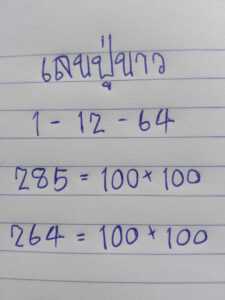 เลขปู่ขาว
1 - 12 - 64
285 = 100 × 100
264 = 100 × 100